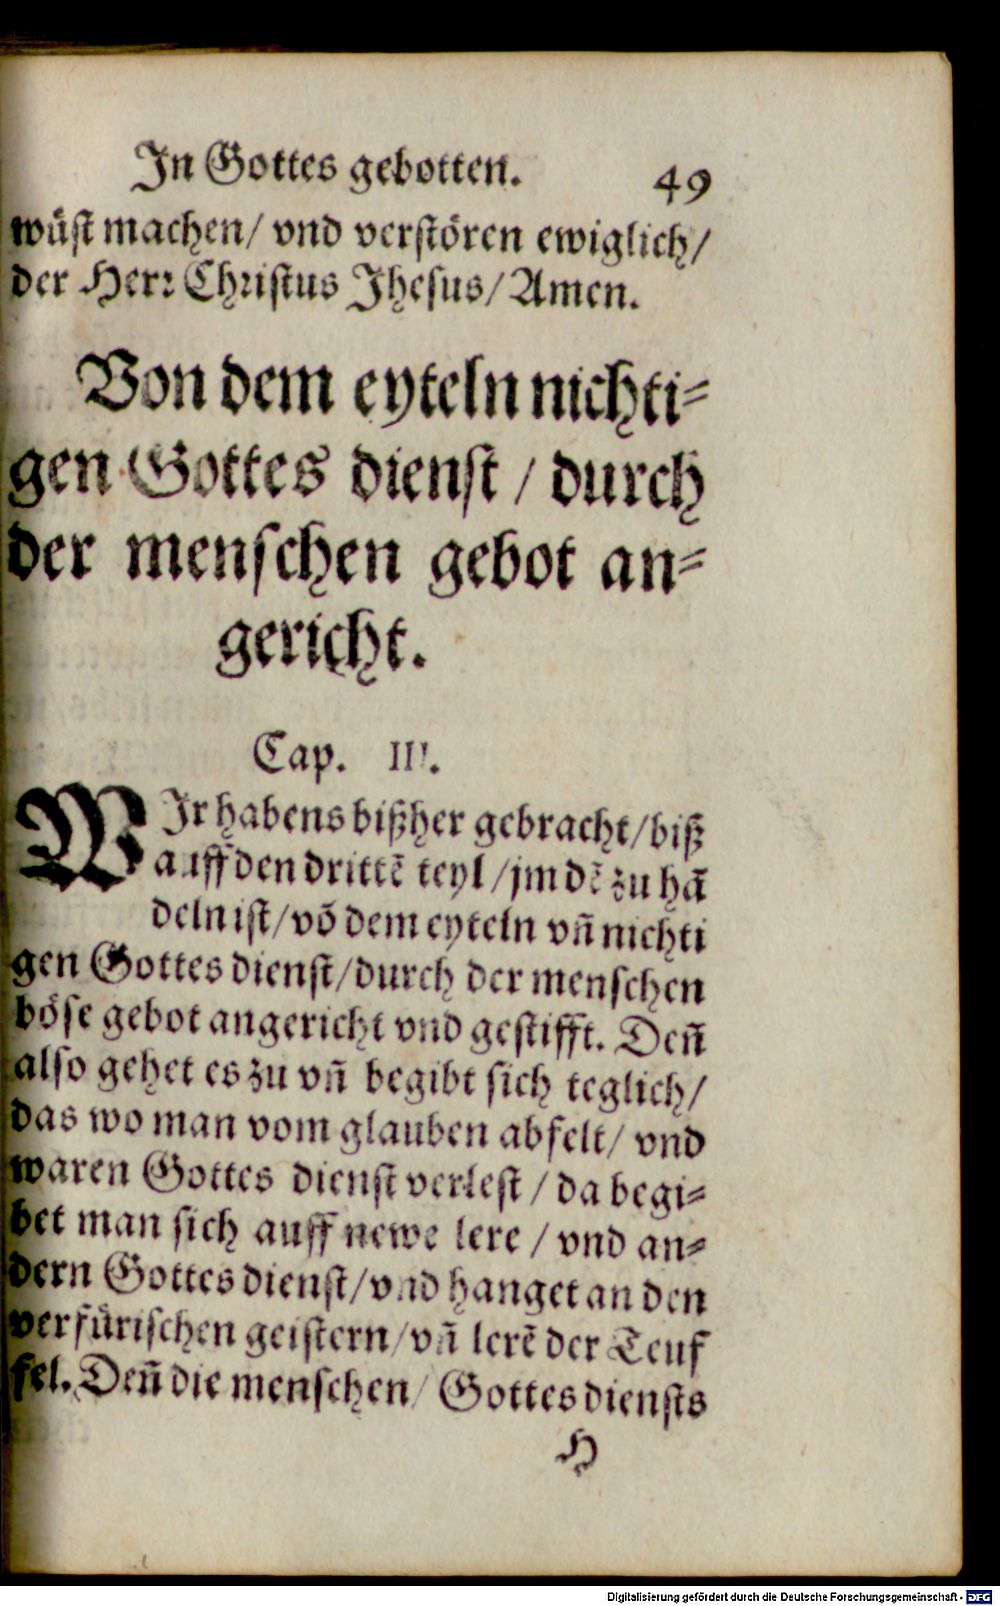 In Gottes gebotten. 49
wüst machen/ vnd verstören ewiglich/
der Herr Christus Jhesus/ Amen.
Von dem eyteln nichti-
gen Gottes dienst / durch
der menschen gebot an-
gericht.
Cap. III.
WJr habens bißher gebracht/biß
auff den drittẽ teyl /jm dẽ zu hã
deln ist/võ dem eyteln vñ nichti
gen Gottes dienst/durch der menschen
böse gebot angericht vnd gestifft. Deñ
also gehet es zu vñ begibt sich teglich/
das wo man vom glauben abfelt/ vnd
waren Gottes dienst verlest / da begi-
bet man sich auff newe lere / vnd an-
dern Gottes dienst/vnd hanget an den
verfürischen geistern/vñ lerẽ der Teuf
fel. Deñ die menschen/ Gottes diensts
H
Digitalisierung gefördert durch die Deutsche Forschungsgemeinschaft - DFG